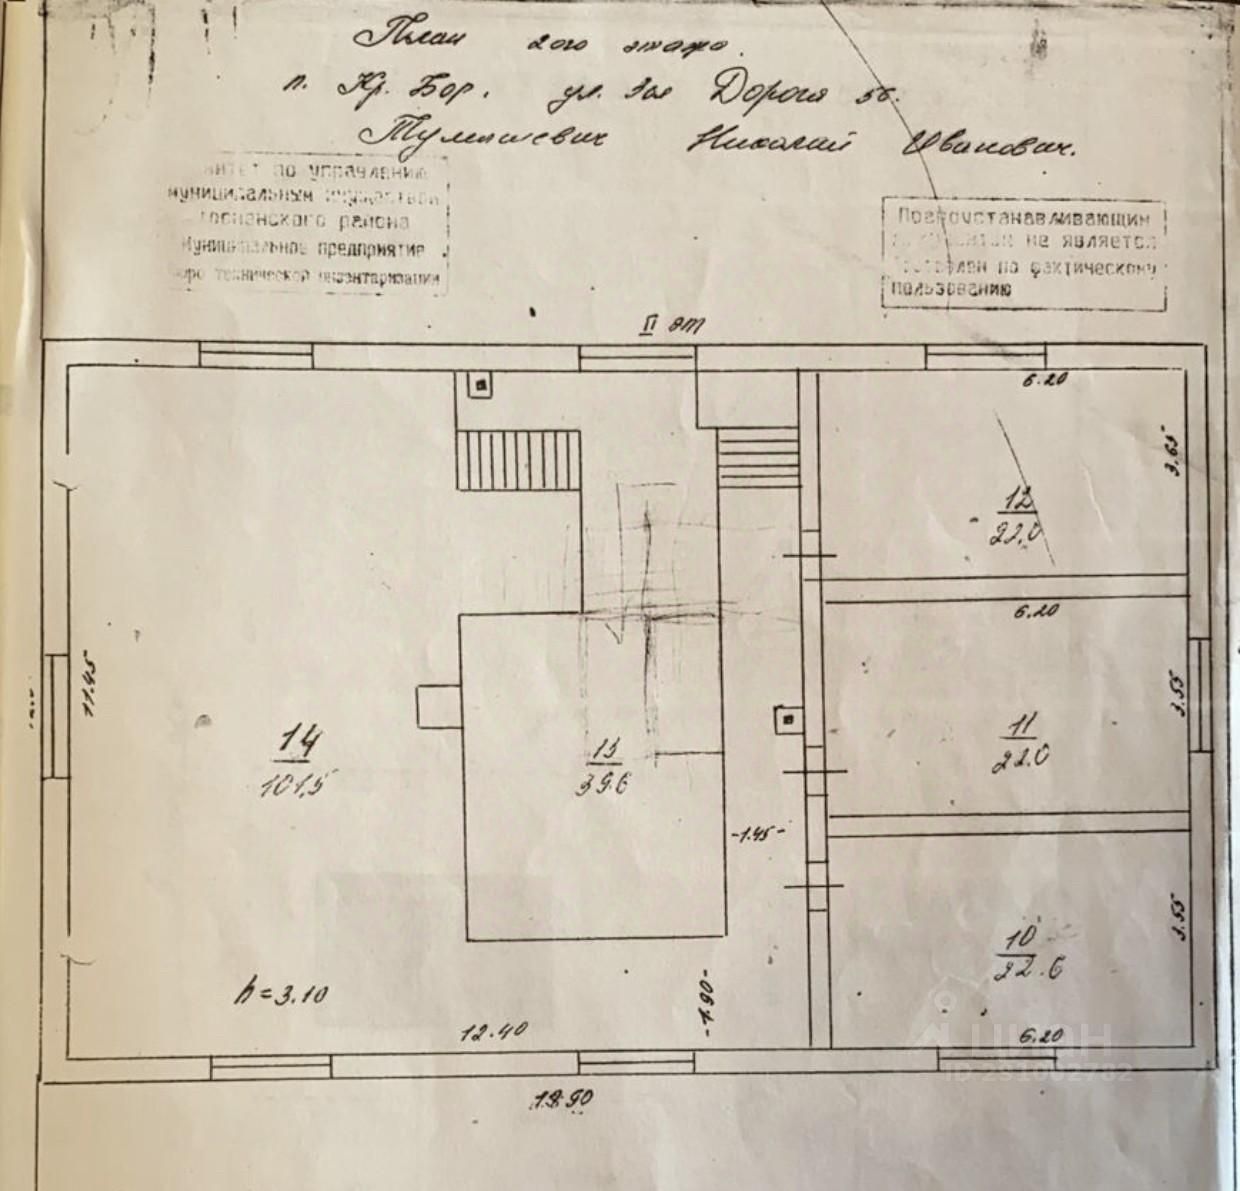 План 2ого этажа.
п. Кр. Бор. ул. 3ая Дорога 56.
Николай Иванович.
по управлению
муниципальным имуществом
района
Муниципальное предприятие
технической инвентаризации
Правоустанавливающим
не является
по фактическому
пользованию
II эт
6.20
3.65
12
22,0
6.20
11.45
3.55
14
101,5
13
39.6
11
22.0
-1.45-
3.55
10
22.6
h=3.10
12.40
-1.90-
6.20
ЦИАН
19.90